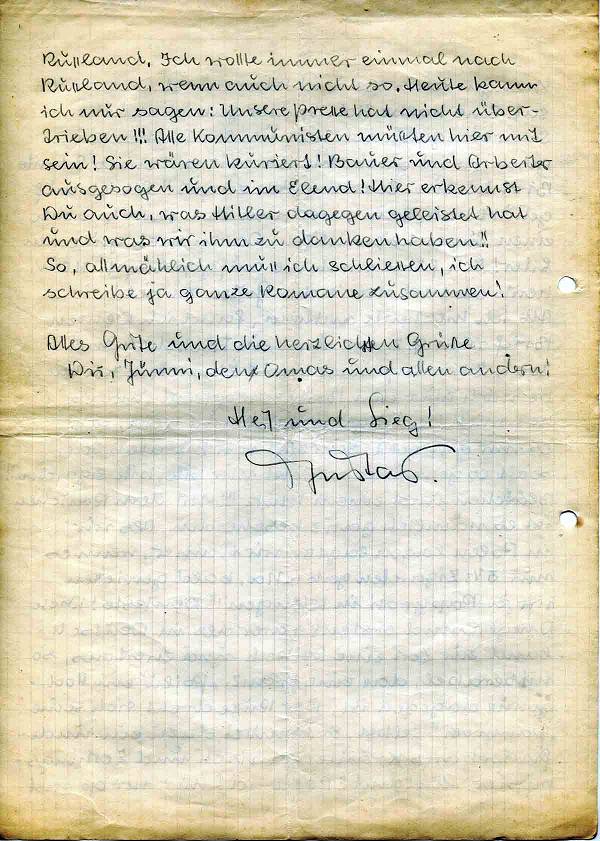 Rußland. Ich wollte immer einmal nach
Rußland, wenn auch nicht so. Heute kann
ich nur sagen: Unsere Presse hat nicht über-
trieben!!! Alle Kommunisten müßten hier mit
sein! Sie wären kuriert! Bauer und Arbeiter
ausgesogen und im Elend! Hier erkennst
Du auch, was Hitler dagegen geleistet hat
und was wir ihm zu danken haben!!
So, allmählich muß ich schliessen, ich
schreibe ja ganze Romane zusammen!
Alles Gute und die herzlichsten Grüße
Dir, Jünni, den Omas und allen andern!
Heil und Sieg!
Gustav.